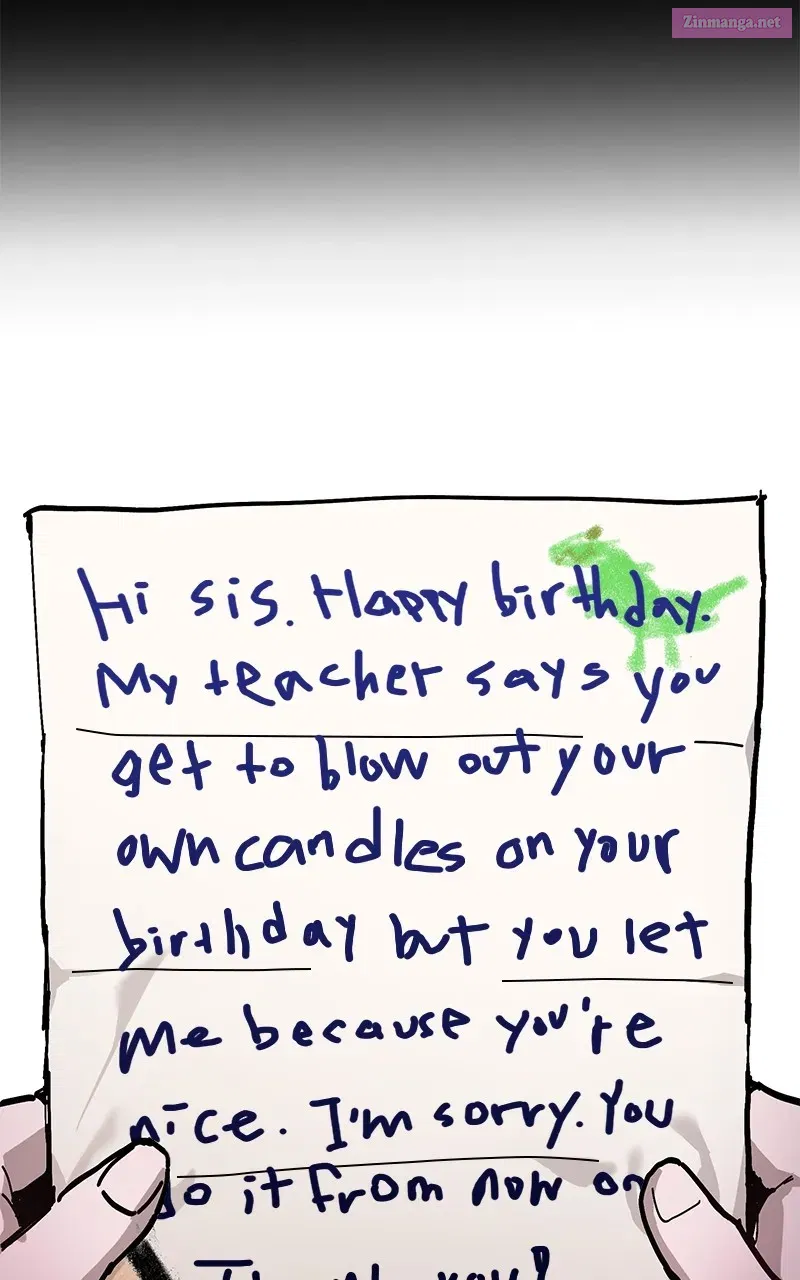 Zinmanga.net
Hi sis. Happy birthday.
My teacher says you
get to blow out your
own candles on your
birthday but you let
me because you're
nice. I'm sorry. You
do it from now on